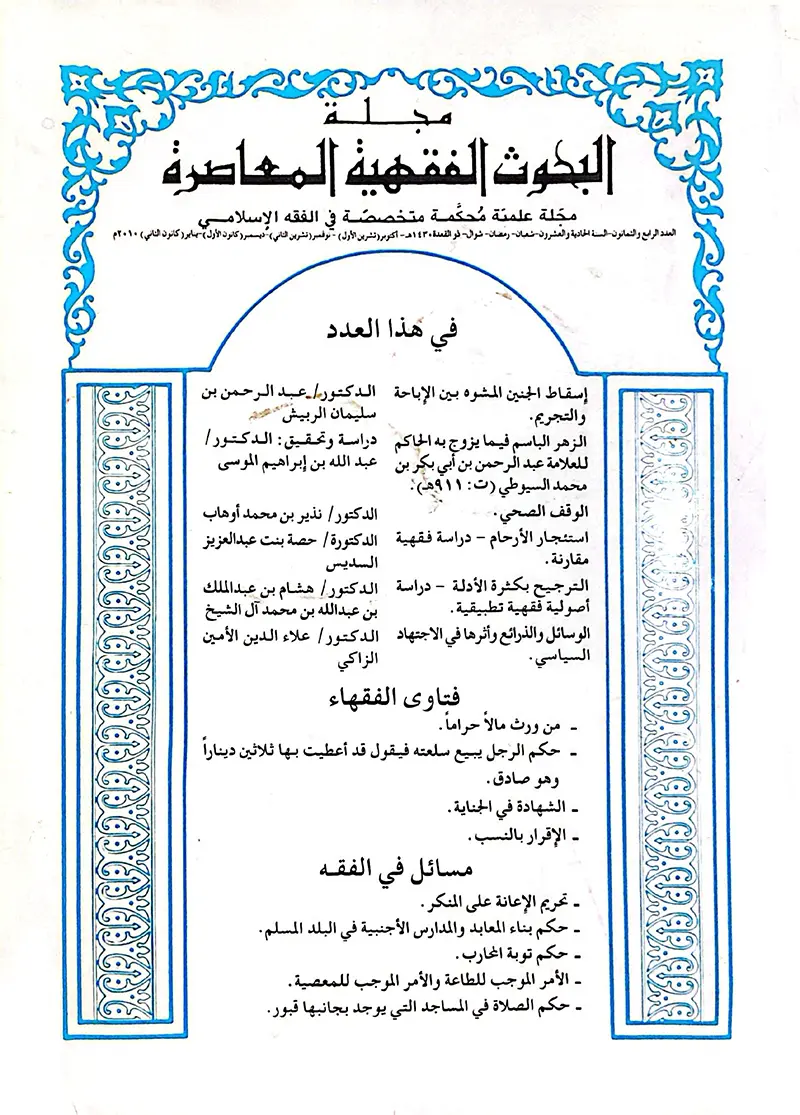 مجلة
البحوث الفقهية المعاصرة
مجلة علمية مُحكَّمة متخصصة في الفقه الإسلامي
العدد الرابع والثمانون-السنة الحادية والعشرون-شعبان- رمضان- شوال- ذو القعدة ١٤٣٠هـ- أكتوبر(تشرين الأول) - نوفمبر(تشرين الثاني)- ديسمبر(كانون الأول)-يناير(كانون الثاني) ٢٠١٠م
في هذا العدد
إسقاط الجنين المشوه بين الإباحة الدكتور/ عبد الرحمن بن
والتجريم. سليمان الربيش
الزهر الباسم فيما يزوج به الحاكم دراسة وتحقيق: الدكتور/
للعلامة عبد الرحمن بن أبي بكر بن عبد الله بن إبراهيم الموسى
محمد السيوطي (ت: ٩١١هـ).
الوقف الصحي. الدكتور/ نذير بن محمد أوهاب
استئجار الأرحام – دراسة فقهية الدكتورة/ حصة بنت عبدالعزيز
مقارنة. السديس
الترجيح بكثرة الأدلة – دراسة الدكتور/ هشام بن عبدالملك
أصولية فقهية تطبيقية. بن عبدالله بن محمد آل الشيخ
الوسائل والذرائع وأثرها في الاجتهاد الدكتور/ علاء الدين الأمين
السياسي. الزاكي
فتاوى الفقهاء
ـ من ورث مالاً حراماً.
ـ حكم الرجل يبيع سلعته فيقول قد أعطيت بها ثلاثين ديناراً
وهو صادق.
ـ الشهادة في الجناية.
ـ الإقرار بالنسب.
مسائل في الفقه
ـ تحريم الإعانة على المنكر.
ـ حكم بناء المعابد والمدارس الأجنبية في البلد المسلم.
ـ حكم توبة المحارب.
ـ الأمر الموجب للطاعة والأمر الموجب للمعصية.
ـ حكم الصلاة في المساجد التي يوجد بجانبها قبور.